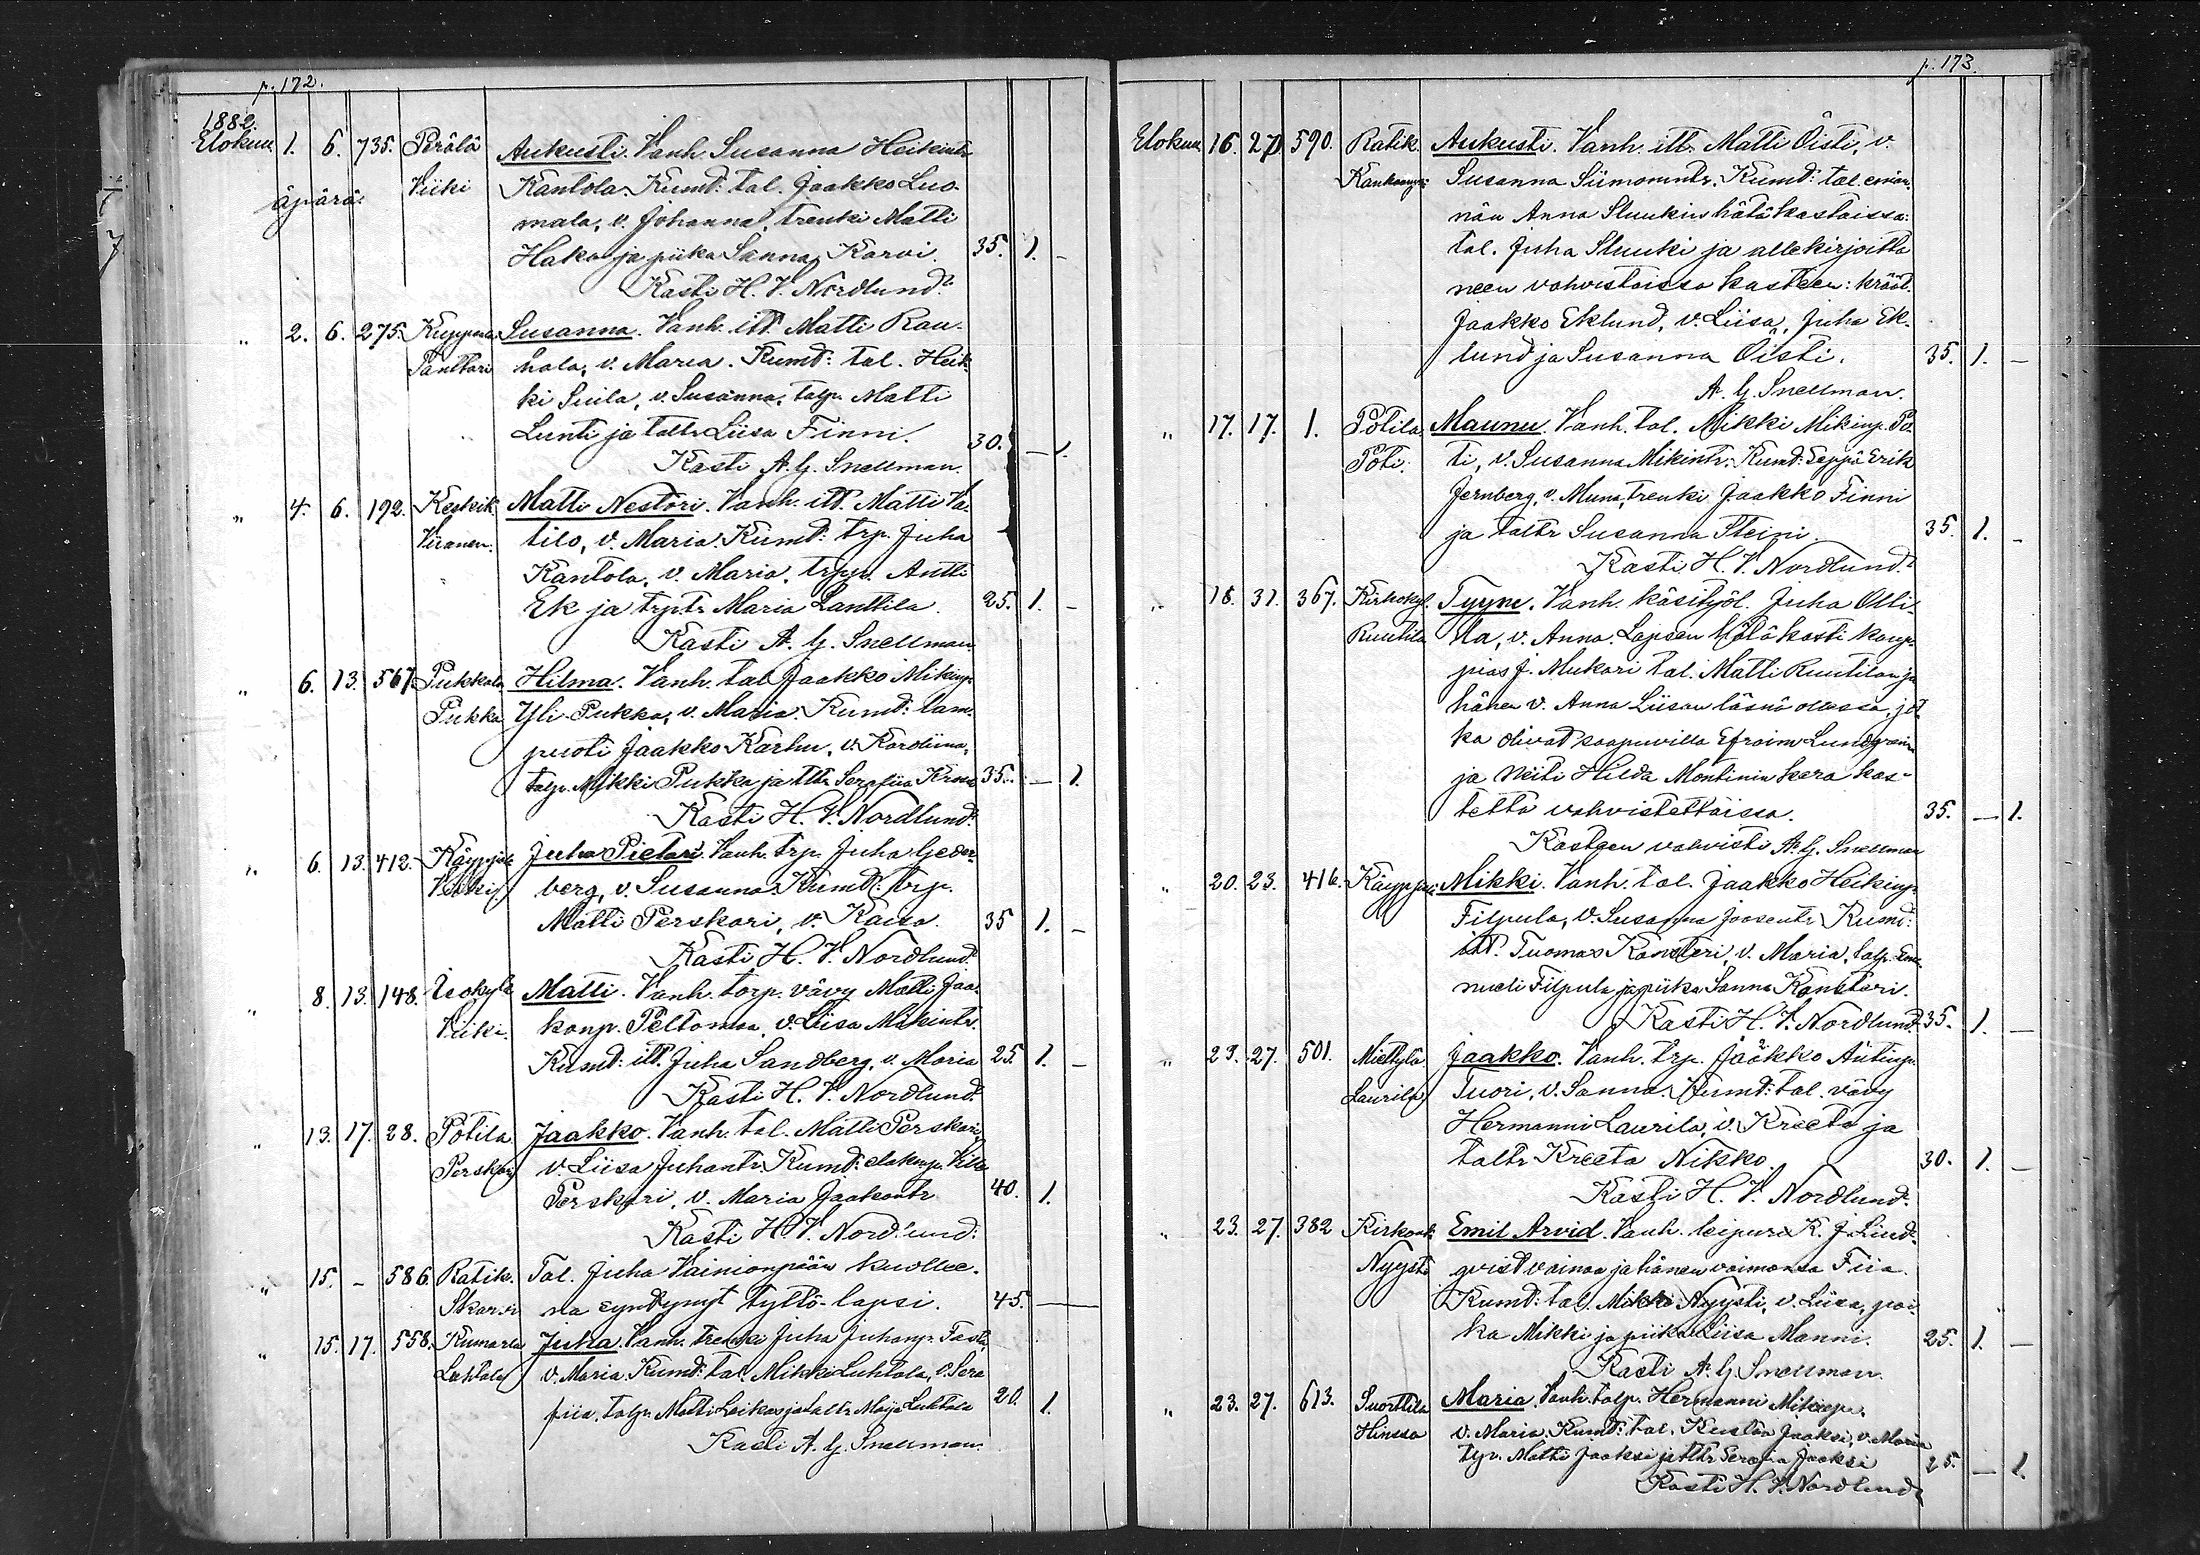 p. 172.
1882.
Elokuu 1. 6. 735. Perälä Aukusti. Vanh. Susanna Heikintr
äpärä Viiki Kantola. Kumd: tal. Jaakko Luo-
mala, v. Johanna, trenki Matti
Haka ja piika Sanna Karvi. 35. 1. -
Kasti H. V. Nordlund.
„ 2. 6. 275. Susanna. Vanh. itt. Matti Rau-
Panttari hala, v. Maria. Kumd: tal. Heik-
ki Suila, v. Susanna, talp. Matti
Lunti ja taltr Liisa Finni. 30. - 1.
Kasti A. G. Snellman.
„ 4. 6. 192. Keskik. Matti Nestori. Vanh. itt. Matti Va-
Viianen. tilo, v. Maria. Kumd: trp. Juha
Kantola, v. Maria, trpp. Antti
Ek ja trptr Maria Lanttila. 25. 1. -
Kasti A. G. Snellman.
„ 6. 13. 567. Pukkala Hilma. Vanh. tal. Jaakko Mikinp.
Pukka Yli-Pukka, v. Maria. Kumd: lam-
puoti Jaakko Karhu, v. Karoliina,
talp. Mikki Pukka ja ttr Serafiia 35. - 1.
Kasti H. V. Nordlund.
„ 6. 13. 412. Käyppilä Juha Pietari. Vanh. trp. Juha Geder-
berg, v. Susanna. Kumd: trp.
Matti Perskari, v. Kaisa. 35 1. -
Kasti H. V. Nordlund.
„ 8. 13. 148. Isokylä Matti. Vanh. torp. vävy Matti Jaa-
Viiki. konp. Peltomaa, v. Liisa Mikintr.
Kumd: itt. Juha Sandberg, v. Maria 25. 1. -
Kasti H. V. Nordlund.
„ 13. 17. 28. Potila Jaakko. Vanh. tal. Matti Perskari,
Perskari v. Liisa Juhantr. Kumd: elakmp. Ville
Perskari, v. Maria Jaakontr 40. 1.
Kasti H. V. Nordlund.
„ 15. - 586. Ratik. Tal. Juha Vainionpään kuollee-
na syntynyt tyttö-lapsi. 45. -
„ 15. 17. 558. Kumarla Juha. Vanh. trenki Juha Juhanp.
Luhtala v. Maria. Kumd: tal. Mikki Luhtala, v. Sera
fiia, talp. Matti Leikas ja taltr Maija Luhtala 20. 1.
Kasti A. G. Snellman.
p. 173.
Elokuu 16. 27. 590. Ratik. Aukusti. Vanh. itt. Matti Öisti, v.
Susanna Siimonintr. Kumd: tal. emän-
nän Anna Sluukin hätäkastaissa:
tal. Juha Sluuki ja allekirjoitta
neen vahvistaissa kasteen: kräät.
Jaakko Eklund, v. Liisa, Juha Ek-
lund ja Susanna Öisti. 35. 1. -
A. G. Snellman.
„ 17. 17. 1. Potila Maunu. Vanh. tal. Mikki Mikinp. Po-
Poti. ti, v. Susanna Mikintr. Kumd: seppä Erik
Jernberg, v. Muna, trenki Jaakko Finni
ja taltr Susanna Steini. 35. 1. -
Kasti H. V. Nordlund.
„ 18. 31. 367. Kirkokyl. Tyyne. Vanh. käsityöl. Juha Olli-
Ruutila la, v. Anna. Lapsen hätäkasti kaup-
pias J. Mukari tal. Matti Ruutilan ja
hänen v. Anna Liisan läsnä ollessa, jot
ka olivat saapuvilla Efraim Lundgrenin
ja Neiti Hilda Montinin kera kas-
tetta vahvistettaissa. 35. - 1.
Kasteen vahvisti A. G. Snellman
„ 20. 23. 416. Mikki. Vanh. tal. Jaakko Heikinp.
Filpula, v. Susanna Joosentr. Kumd:
itt. Tuomas Kansteri, v. Maria, talp. Ema-
nueli Filpula ja piika Sanna Kansteri.
Kasti H. V. Nordlund. 35. 1. -
„ 23. 27. 501. Miettylä Jaakko. Vanh. trp. Jaakko Antinp.
Laurila Tuori, v. Sanna. Kumd: tal. vävy
Hermanni Laurila, v. Kreeta ja
taltr Kreeta Nikko. 30. 1. -
Kasti H. V. Nordlund.
„ 23. 27. 382 Kirkonk. Emil Arvid. Vanh. leipuri K. J. Lind-
Nyysti qvist vainaa ja hänen vaimonsa Fiia.
Kumd: tal. Mikki Nyysti, v. Liisa, poi
ka Mikki ja piika Liisa Manni. 25. 1. -
Kasti A. G. Snellman.
„ 23. 27. 613. Suorttila Maria. Vanh. talp. Hermanni Mikinp.
Hinssa v. Maria. Kumd: tal. Kustaa Jaaksi, v. Maria
Matti Jaaksi ja ttr Serafia Jaaksi 25. - 1.
Kasti H. V. Nordlund